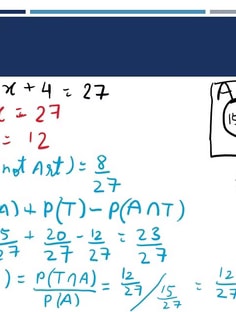 x + 4 = 27
x = 27
= 12
A
15
not Art) = 8/27
A) + P(T) - P(A∩T)
5/27 + 20/27 - 12/27 = 23/27
) = P(T∩A)/P(A) = 12/27 / 15/27 = 12/27